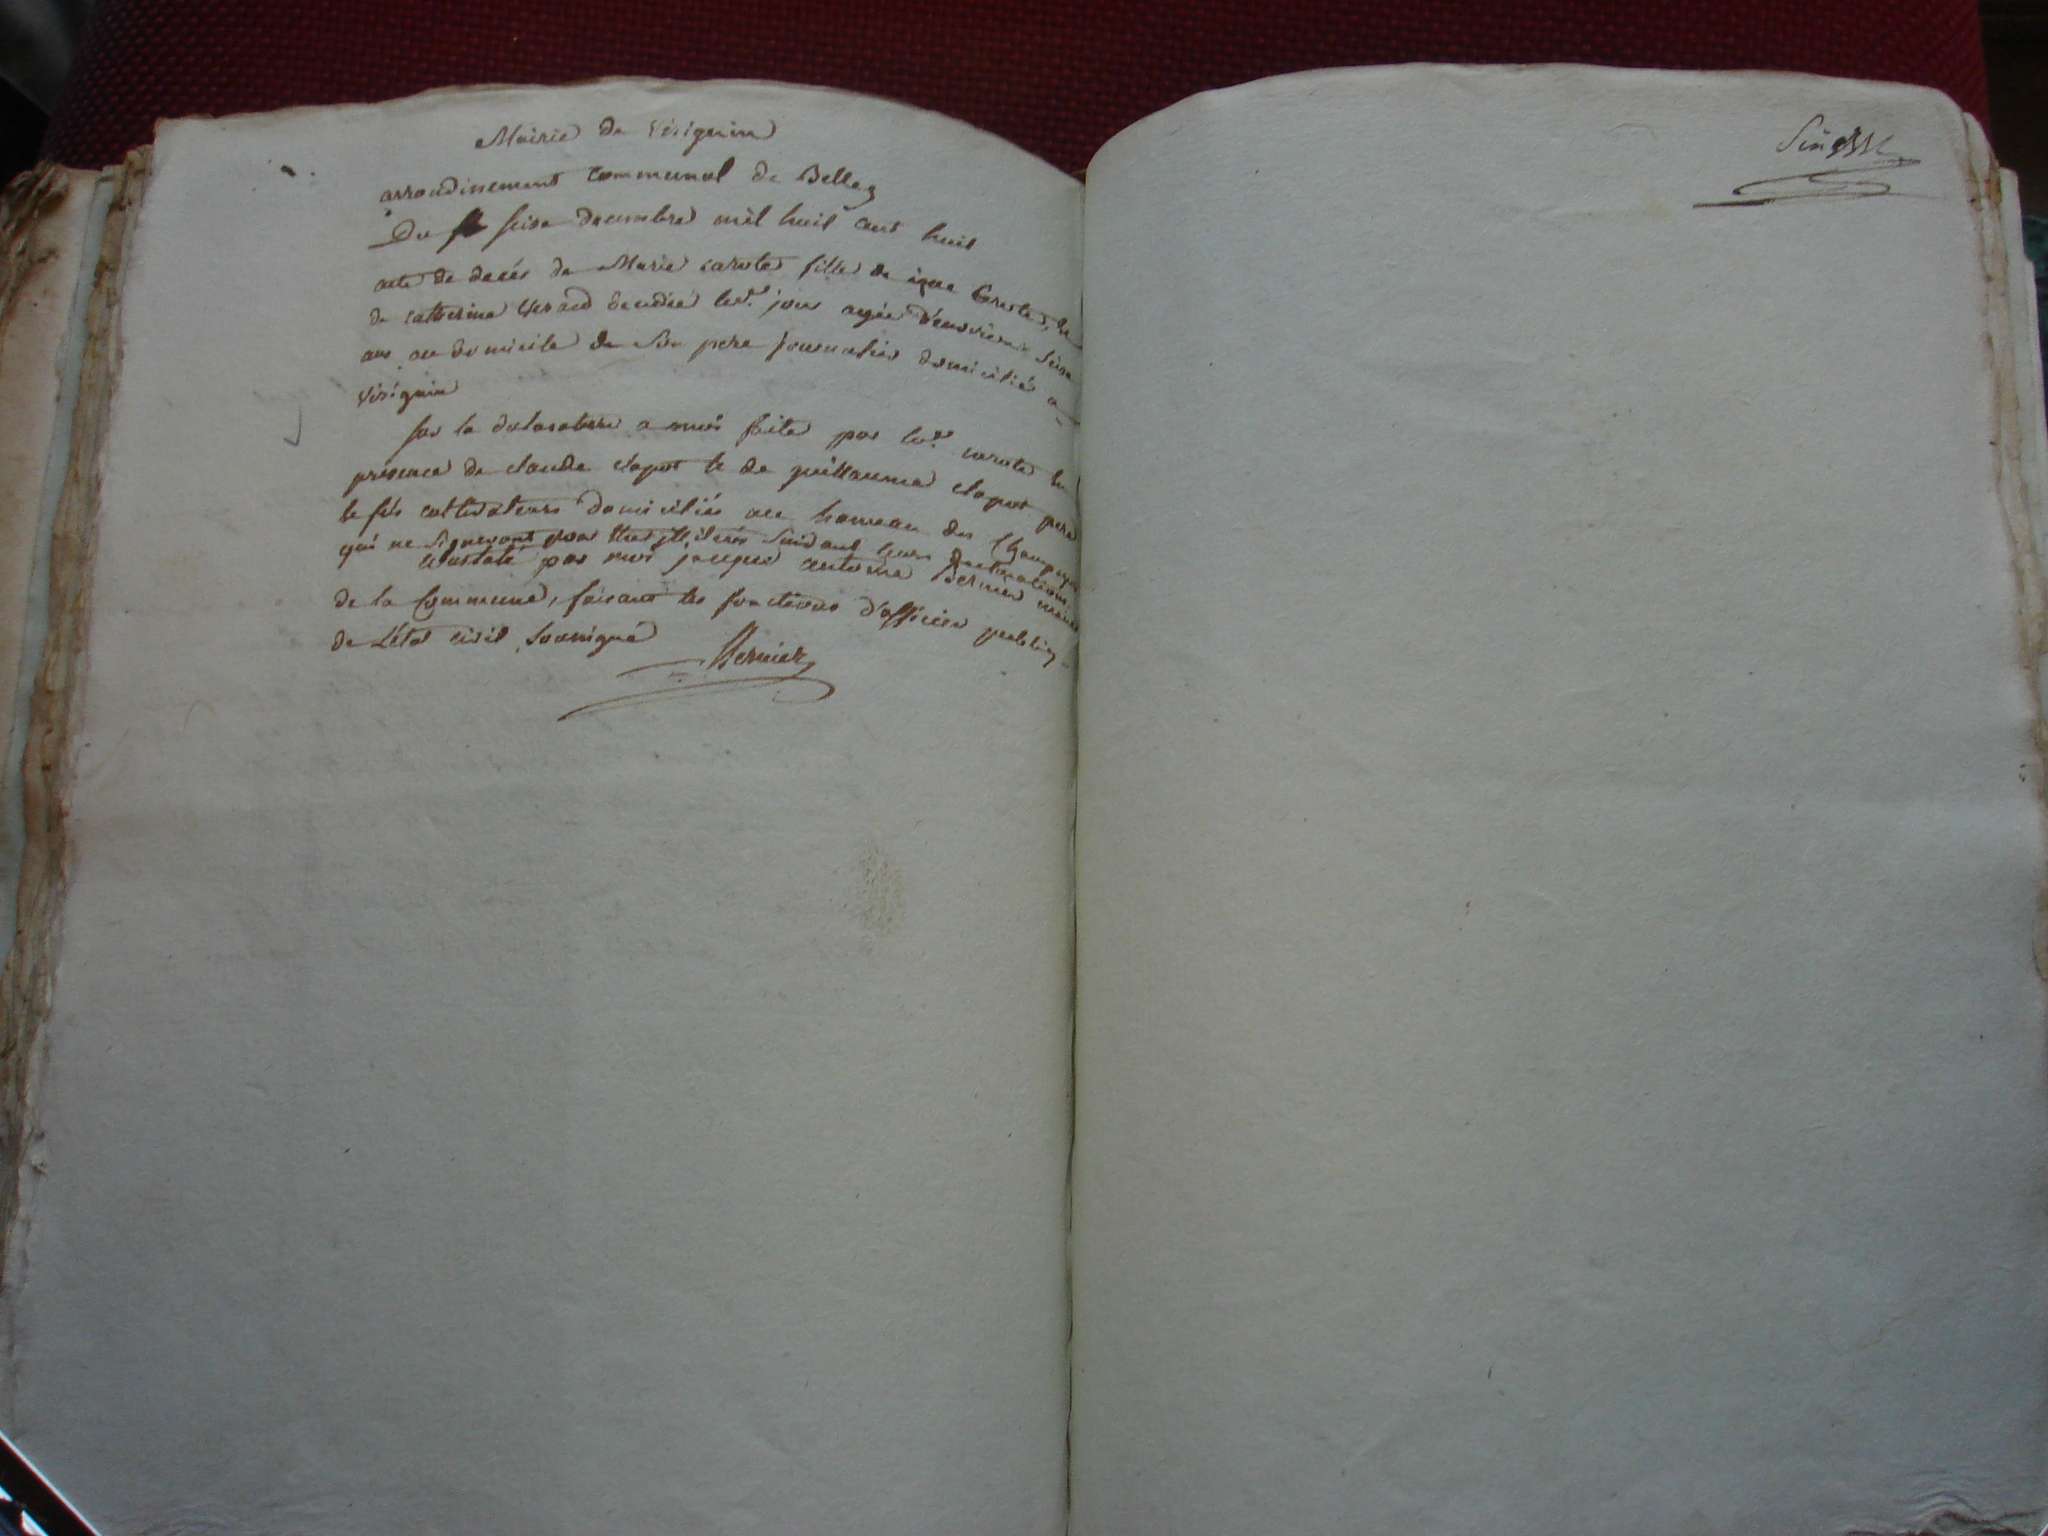 Mairie de Virignin
arrondissement communal de Belley
Du seise decembre mil huit cent huit
acte de decés de Marie carote fille de Carote, et
de catherine decedée led. jour agée d'environ seise
ans au domicile de son pere journalier domicilié a
virignin
sur la declaration a moi faite par led. carote en
presence de claude clapot et de guillaume clapot pere
et fils cultivateurs domiciliés au hameau des
qui ne signeront pour etre illiterés suivant leurs declarations
Constaté par moi jacques antoine Bernier maire
de la Commune, faisant les fonctions d'officier public
de L'état civil soussigné
Bernier